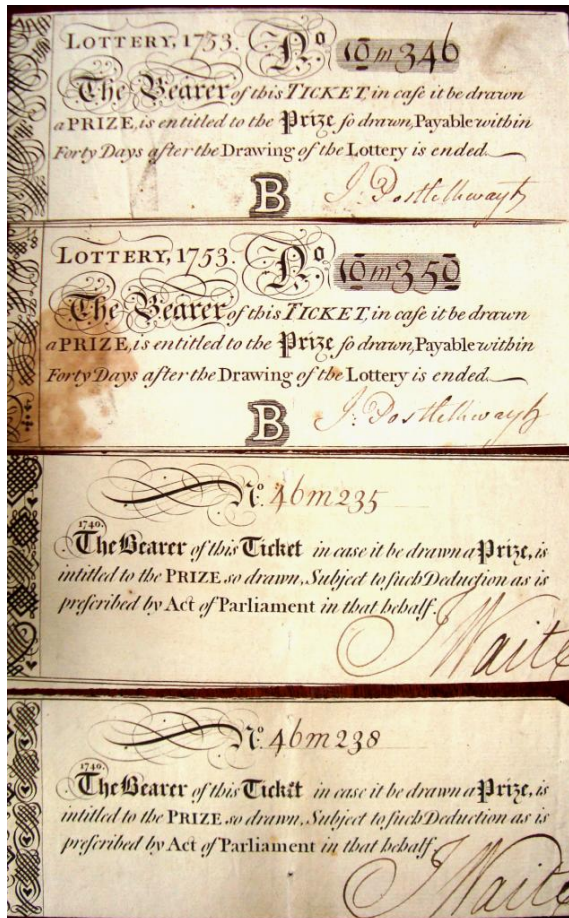 LOTTERY, 1753. No 10m346
The Bearer of this TICKET, in caſe it be drawn
a PRIZE, is entitled to the Prize ſo drawn, Payable within
Forty Days after the Drawing of the Lottery is ended.
B J: Postlethwayt
LOTTERY, 1753. No 10m350
The Bearer of this TICKET, in caſe it be drawn
a PRIZE, is entitled to the Prize ſo drawn, Payable within
Forty Days after the Drawing of the Lottery is ended.
B J: Postlethwayt
No. 46m235
1740.
The Bearer of this Ticket in case it be drawn a Prize, is
intitled to the PRIZE so drawn, Subject to ſuch Deduction as is
preſcribed by Act of Parliament in that behalf.
J Waite
No. 46m238
1740.
The Bearer of this Ticket in case it be drawn a Prize, is
intitled to the PRIZE so drawn, Subject to ſuch Deduction as is
preſcribed by Act of Parliament in that behalf.
J Waite